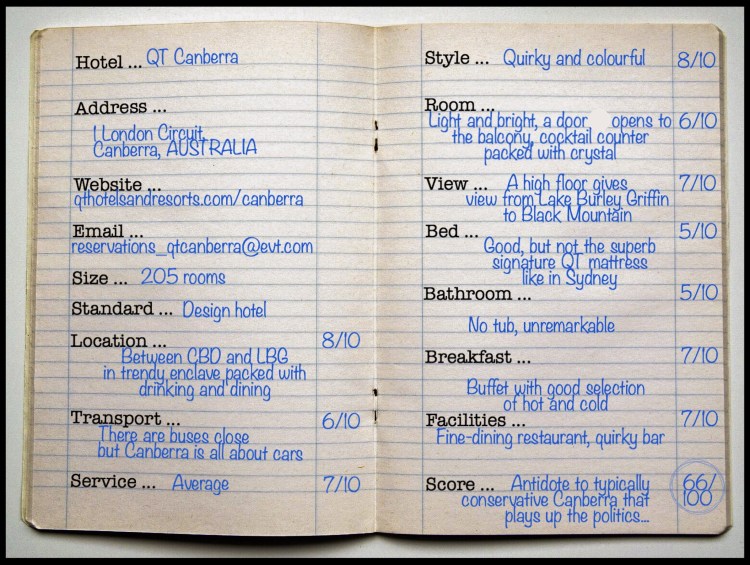 Hotel ... QT Canberra
Address ...
1 London Circuit,
Canberra, AUSTRALIA
Website ...
qthotelsandresorts.com/canberra
Email ...
reservations_qtcanberra@evt.com
Size ... 205 rooms
Standard ... Design hotel
Location ... 8/10
Between CBD and LBG
in trendy enclave packed with
drinking and dining
Transport ... 6/10
There are buses close
but Canberra is all about cars
Service ... Average 7/10
Style ... Quirky and colourful 8/10
Room ...
Light and bright, a door opens to 6/10
the balcony, cocktail counter
packed with crystal
View ... A high floor gives 7/10
view from Lake Burley Griffin
to Black Mountain
Bed ... 5/10
Good, but not the superb
signature QT mattress
like in Sydney
Bathroom ... 5/10
No tub, unremarkable
Breakfast ... 7/10
Buffet with good selection
of hot and cold
Facilities ... 7/10
Fine-dining restaurant, quirky bar
Score ... Antidote to typically 66/
conservative Canberra that 100
plays up the politics...